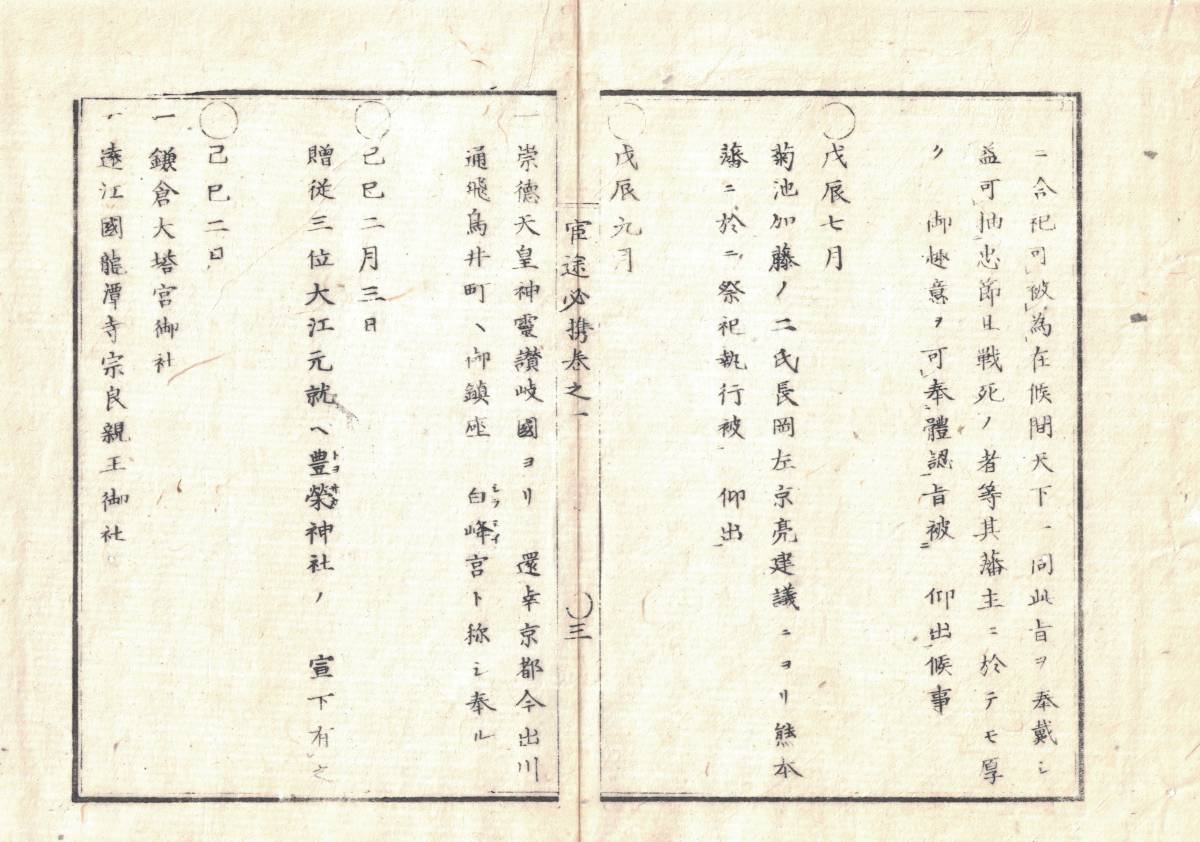 ニ合祀可被為在候間天下一同此旨ヲ奉戴シ
益可抽忠節且戦死ノ者等其藩主ニ於テモ厚
ク 御趣意ヲ可奉體認旨被 仰出候事
戊辰七月
菊池加藤ノ二氏長岡左京亮建議ニヨリ熊本
藩ニ於ニ祭祀執行被 仰出
戊辰九月
宦途必携巻之一
三
一
崇德天皇神靈讃岐國ヨリ 還幸京都今出川
通飛鳥井町ヘ御鎮座 白峰宮ト称シ奉ル
己巳二月三日
贈従三位大江元就ヘ豊榮神社ノ 宣下有之
己巳二日
一 鎌倉大塔宮御社
一 遠江國龍潭寺宗良親王御社